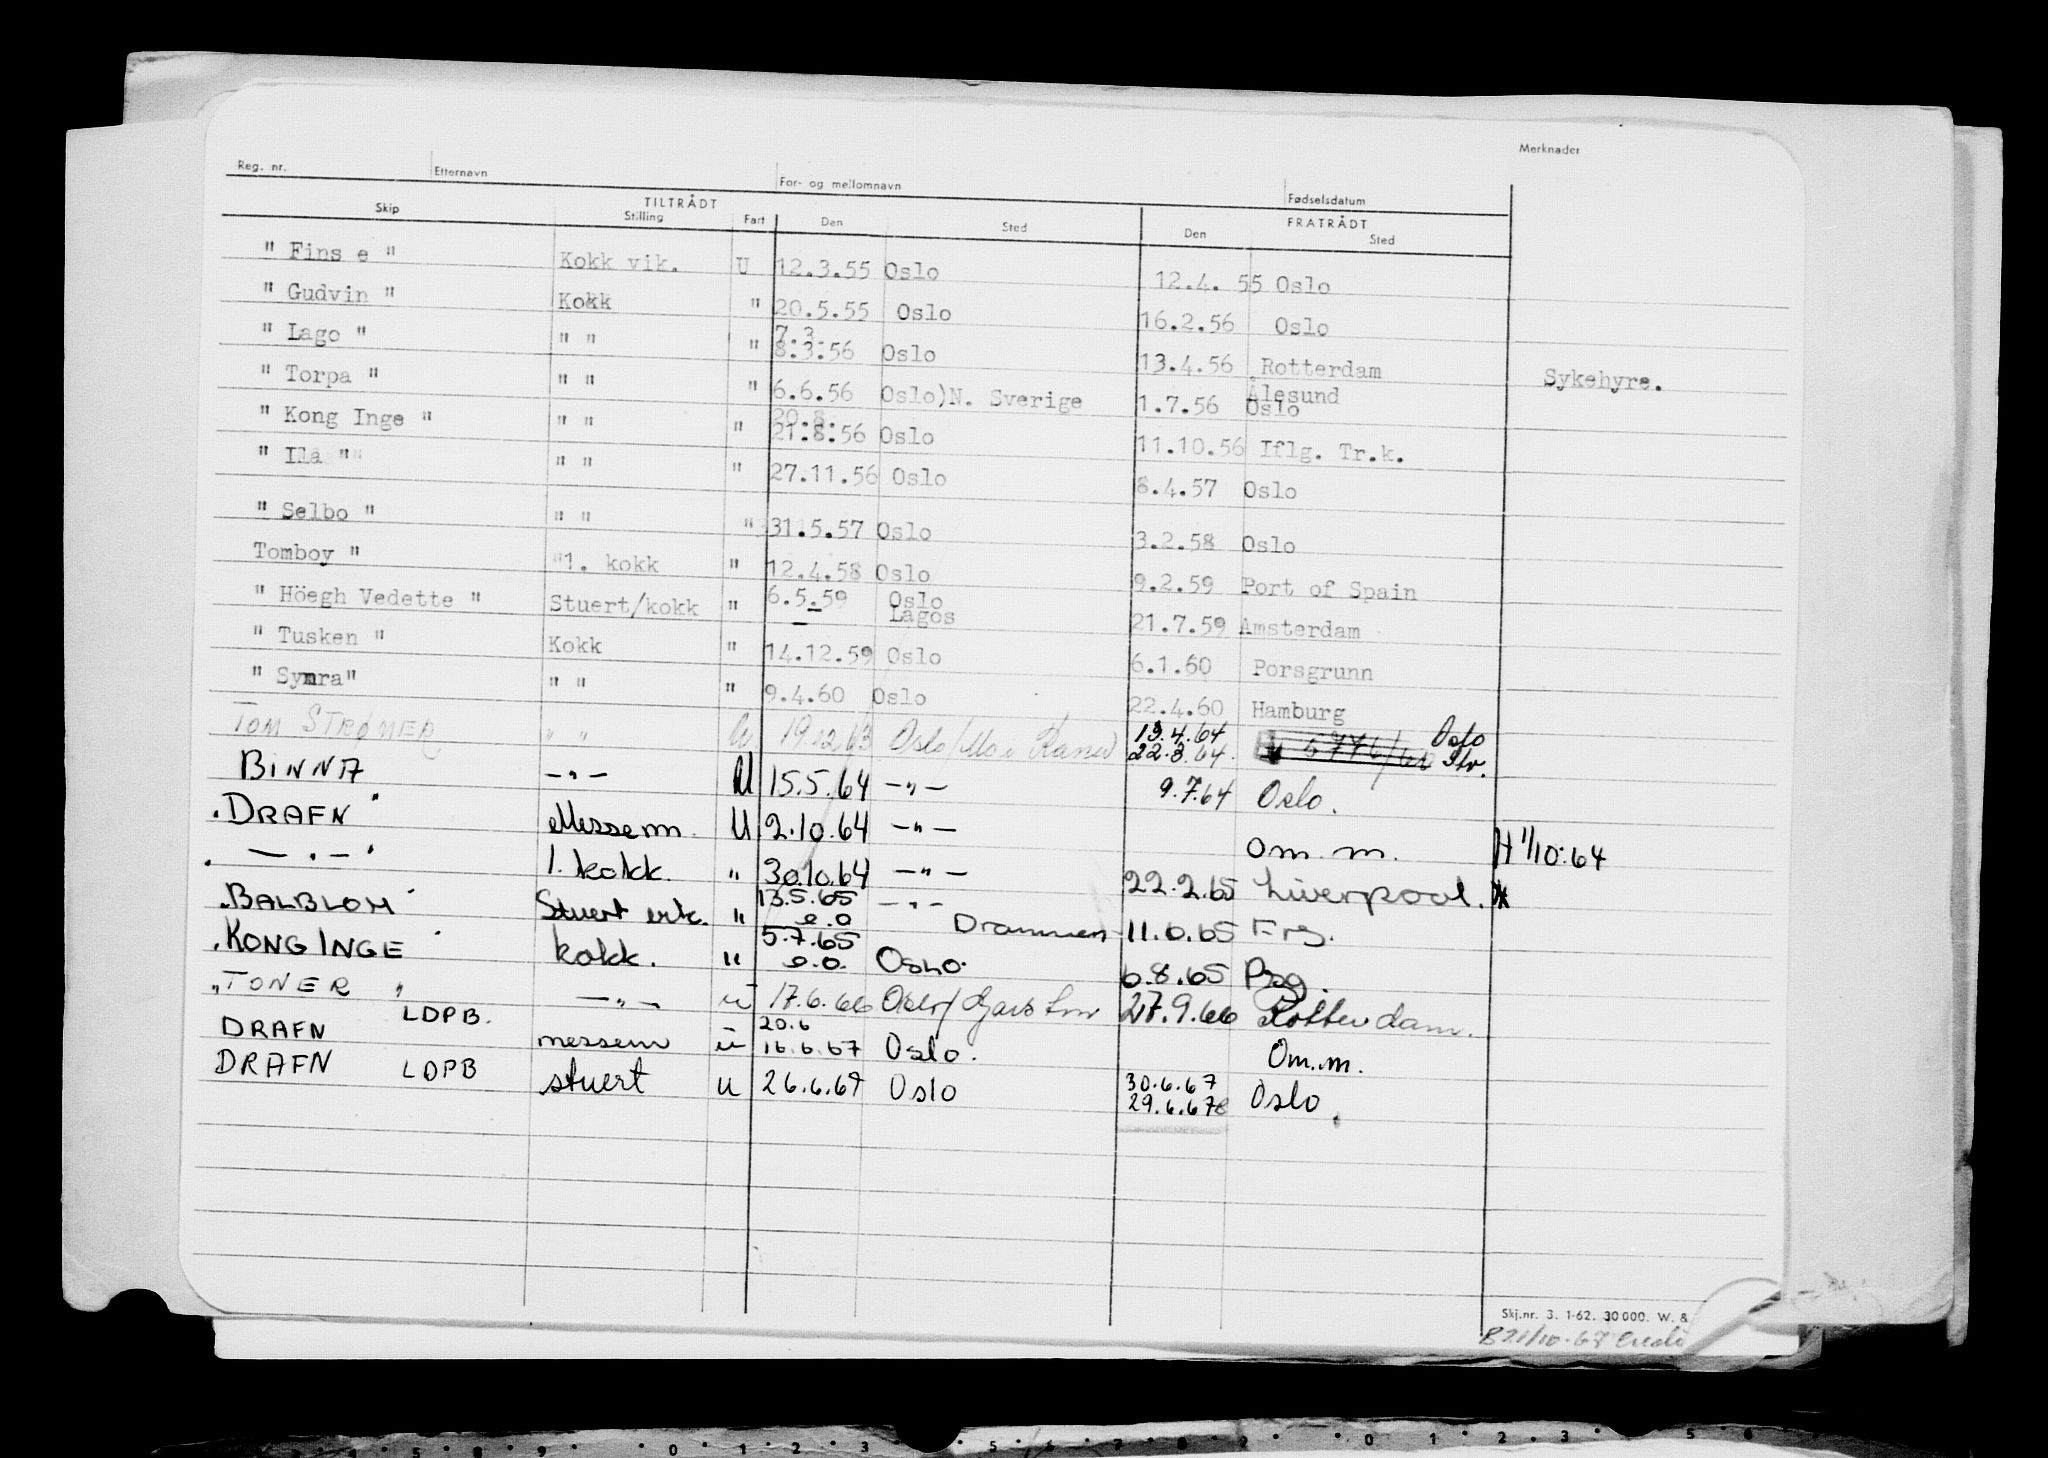 Reg. nr. Etternavn For- og mellomnavn Fødselsdatum Merknader
TILTRÅDT FRATRÅDT
Skip Stilling Fart Den Sted Den Sted
" Fins e " Kokk vik. U 12.3.55 Oslo 12.4. 55 Oslo
" Gudvin " Kokk " 20.5.55 Oslo 16.2.56 Oslo
" Lago " " " " 7.3. 8.3.56 Oslo 13.4.56 Rotterdam Sykehyre.
" Torpa " " " " 6.6.56 Oslo)N. Sverige 1.7.56 Ålesund Oslo
" Kong Inge " " " " 20.8. 21.8.56 Oslo 11.10.56 Iflg. Tr.k.
" Ila "" " " " 27.11.56 Oslo 8.4.57 Oslo
" Selbo " " " " 31.5.57 Oslo 3.2.58 Oslo
Tomboy " "1. kokk " 12.4.58 Oslo 9.2.59 Port of Spain
" Höegh Vedette " Stuert/kokk " 6.5.59 Oslo Lagos 21.7.59 Amsterdam
" Tusken " Kokk " 14.12.59 Oslo 6.1.60 Porsgrunn
" Symra" " " " 9.4.60 Oslo 22.4.60 Hamburg
TOM STRØMER " " U 19.12.63 Oslo/Mo i Rana 19.4.64 22.3.64. Oslo
BINNA -"- U 15.5.64 -"- 9.7.64 Oslo.
"DRAFN" Messem. U 2.10.64 -"- Om. m. H 1/10.64
" -"- " 1. kokk. " 30.10.64 -"- 22.2.65 Liverpool.
"BALBLOM" Stuert vik. " 13.5.65 e.o -"- Drammen 11.6.65 Frg.
"KONG INGE" kokk. " 5.7.65 e.o. Oslo. 6.8.65 Psg.
"TONER " -"- u 17.6.66 Oslo/ 27.9.66 Rotterdam.
DRAFN LDPB. messem u 20.6 16.6.67 Oslo. Om.m.
DRAFN LDPB stuert U 26.6.67 Oslo 30.6.67 29.6.67 Oslo.
Skj.nr. 3. 1-62. 30000. W. &
B 21/10-67